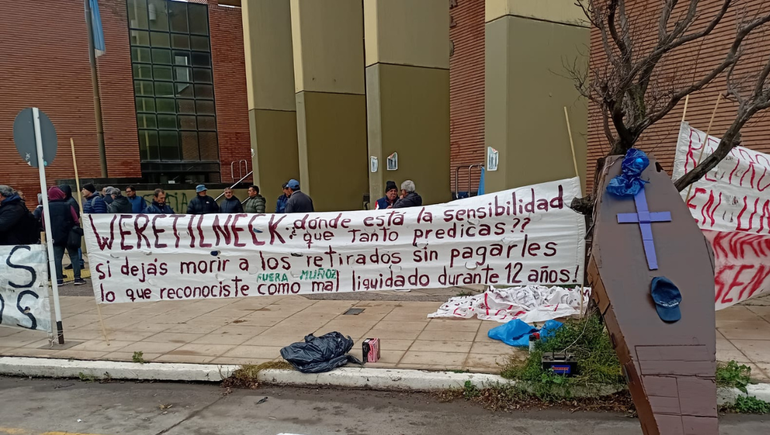 WERETILNECK ¿dónde está la sensibilidad
que Tanto predicas??
si dejás morir a los retirados sin pagarles
lo que reconociste como mal liquidado durante 12 años!
FUERA MUÑOZ
S
OS
EN